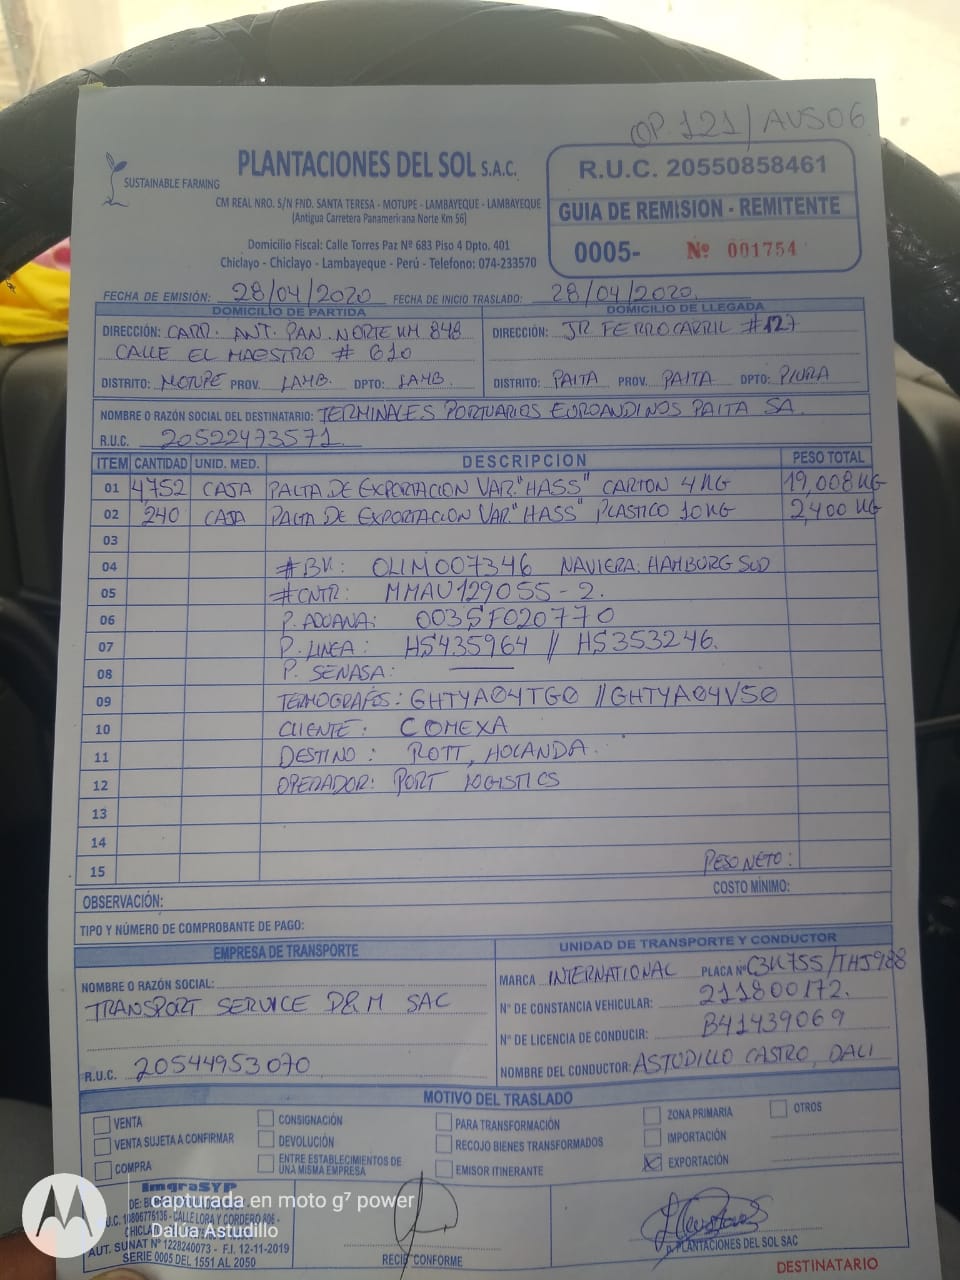 OP. 121/AVS06
SUSTAINABLE FARMING
PLANTACIONES DEL SOL S.A.C.
CM REAL NRO. S/N FND. SANTA TERESA - MOTUPE - LAMBAYEQUE - LAMBAYEQUE
(Antigua Carretera Panamericana Norte Km 56)
Domicilio Fiscal: Calle Torres Paz Nº 683 Piso 4 Dpto. 401
Chiclayo - Chiclayo - Lambayeque - Perú - Telefono: 074-233570
R.U.C. 20550858461
GUIA DE REMISION - REMITENTE
0005- Nº 001754
FECHA DE EMISIÓN: 28/04/2020 FECHA DE INICIO TRASLADO: 28/04/2020.
DOMICILIO DE PARTIDA
DIRECCIÓN: CARR. ANT. PAN. NORTE KM 848
CALLE EL MAESTRO # 610
DISTRITO: MOTUPE PROV. LAMB. DPTO: LAMB.
DOMICILIO DE LLEGADA
DIRECCIÓN: JR FERROCARRIL #127
DISTRITO: PAITA PROV. PAITA DPTO: PIURA
NOMBRE O RAZÓN SOCIAL DEL DESTINATARIO: TERMINALES PORTUARIOS EUROANDINOS PAITA SA.
R.U.C. 20522473571
ITEM CANTIDAD UNID. MED. DESCRIPCION PESO TOTAL
01 4,752 CAJA PALTA DE EXPORTACION VAR."HASS" CARTON 4 KG 19,008 KG
02 240 CAJA PALTA DE EXPORTACION VAR."HASS" PLASTICO 10 KG 2,400 KG
03
04 #BK: OLIM007346 NAVIERA: HAMBURG SUD
05 #CNTR: MMAU129055-2.
06 P. ADUANA: 003SF020770
07 P. LINEA: HS435964 // HS353246.
08 P. SENASA:
09 TERMOGRAFOS: GHTYA04TG0 //GHTYA04V50
10 CLIENTE: COMEXA
11 DESTINO: ROTT, HOLANDA.
12 OPERADOR: PORT LOGISTICS
13
14
15 PESO NETO:
OBSERVACIÓN: COSTO MÍNIMO:
TIPO Y NÚMERO DE COMPROBANTE DE PAGO:
EMPRESA DE TRANSPORTE
NOMBRE O RAZÓN SOCIAL:
TRANSPORT SERVICE D&M SAC
R.U.C. 20544953070
UNIDAD DE TRANSPORTE Y CONDUCTOR
MARCA INTERNATIONAL PLACA Nº C3K755/THJ988
N° DE CONSTANCIA VEHICULAR: 211800172.
N° DE LICENCIA DE CONDUCIR: B41439069
NOMBRE DEL CONDUCTOR: ASTUDILLO CASTRO, DALI
MOTIVO DEL TRASLADO
VENTA CONSIGNACIÓN PARA TRANSFORMACIÓN ZONA PRIMARIA OTROS
VENTA SUJETA A CONFIRMAR DEVOLUCIÓN RECOJO BIENES TRANSFORMADOS IMPORTACIÓN
COMPRA ENTRE ESTABLECIMIENTOS DE UNA MISMA EMPRESA EMISOR ITINERANTE EXPORTACIÓN
ImgraSYP
U.C. 10806776136 - CALLE LORA Y CORDERO 606 -
AUT. SUNAT N° 1228240073 - F.I. 12-11-2019
SERIE 0005 DEL 1551 AL 2050
RECIBI CONFORME
p. PLANTACIONES DEL SOL SAC
DESTINATARIO
capturada en moto g⁷ power
Dalúa Astudillo